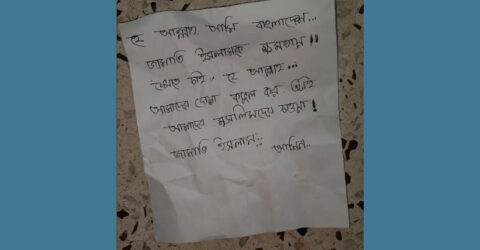 হে আল্লাহ আমি বাংলাদেশে...
জামাতি ইসলামকে ক্ষমতায়!!
দেখতে চাই, হে আল্লাহ...
আমাদের দোয়া কবুল কর এটাই
আমাদের মুসলিমদের চাওয়া!
জামাতি ইসলাম:: আমিন..